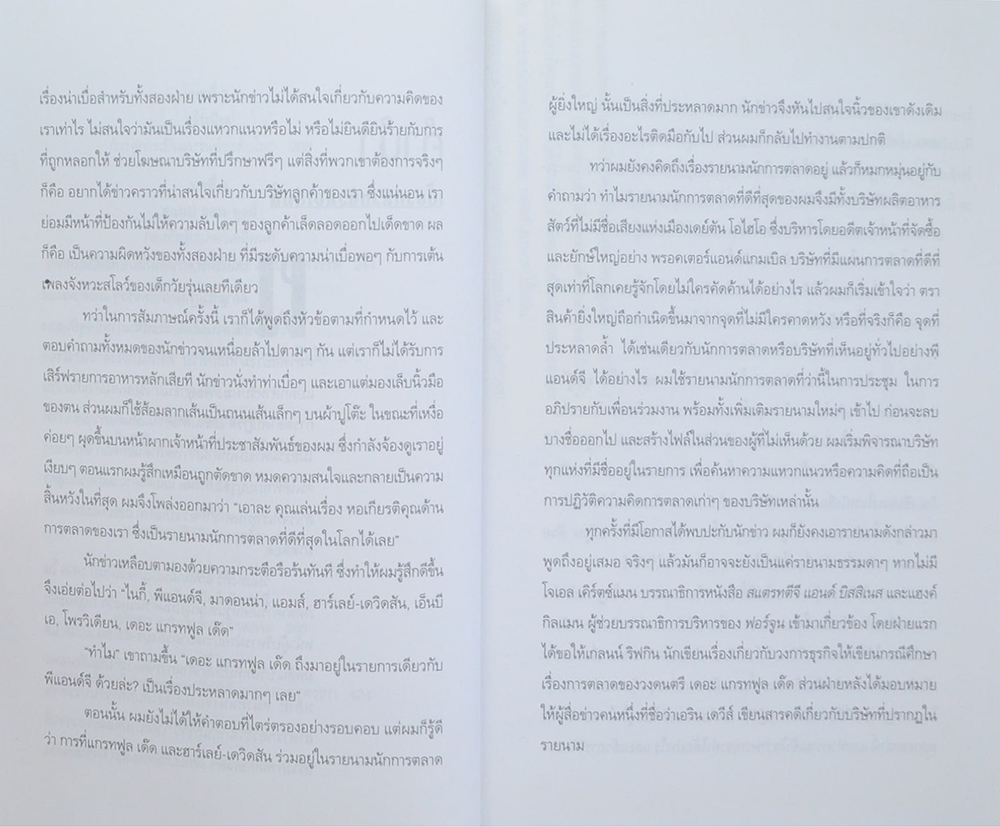 เรื่องน่าเบื่อสำหรับทั้งสองฝ่าย เพราะนักข่าวไม่ได้สนใจเกี่ยวกับความคิดของ
เราเท่าไร ไม่สนใจว่ามันเป็นเรื่องแหวกแนวหรือไม่ หรือไม่ยินดียินร้ายกับการ
ที่ถูกหลอกให้ ช่วยโฆษณาบริษัทที่ปรึกษาฟรีๆ แต่สิ่งที่พวกเขาต้องการจริงๆ
ก็คือ อยากได้ข่าวคราวที่น่าสนใจเกี่ยวกับบริษัทลูกค้าของเรา ซึ่งแน่นอน เรา
ย่อมมีหน้าที่ป้องกันไม่ให้ความลับใดๆ ของลูกค้าเล็ดลอดออกไปเด็ดขาด ผล
ก็คือ เป็นความผิดหวังของทั้งสองฝ่าย ที่มีระดับความน่าเบื่อพอๆ กับการเต้น
เพลงจังหวะสโลว์ของเด็กวัยรุ่นเลยทีเดียว
ทว่าในการสัมภาษณ์ครั้งนี้ เราก็ได้พูดถึงหัวข้อตามที่กำหนดไว้ และ
ตอบคำถามทั้งหมดของนักข่าวจนเหนื่อยล้าไปตามๆ กัน แต่เราก็ไม่ได้รับการ
เสิร์ฟรายการอาหารหลักเสียที นักข่าวนั่งทำท่าเบื่อๆ และเอาแต่มองเล็บนิ้วมือ
ของตน ส่วนผมก็ใช้ส้อมลากเส้นเป็นถนนเส้นเล็กๆ บนผ้าปูโต๊ะ ในขณะที่เหงื่อ
ค่อยๆ ผุดขึ้นบนหน้าผากเจ้าหน้าที่ประชาสัมพันธ์ของผม ซึ่งกำลังจ้องดูเราอยู่
เงียบๆ ตอนแรกผมรู้สึกเหมือนถูกตัดขาด หมดความสนใจและกลายเป็นความ
สิ้นหวังในที่สุด ผมจึงโพล่งออกมาว่า "เอาละ คุณเล่นเรื่อง หอเกียรติคุณด้าน
การตลาดของเรา ซึ่งเป็นรายนามนักการตลาดที่ดีที่สุดในโลกได้เลย"
นักข่าวเหลือบตามองด้วยความกระตือรือร้นทันที ซึ่งทำให้ผมรู้สึกดีขึ้น
จึงเอ่ยต่อไปว่า "ไนกี้, พีแอนด์จี, มาดอนน่า, แอมส์, ฮาร์เลย์-เดวิดสัน, เอ็นบี
เอ, โพรวิเดียน, เดอะ แกรทฟูล เด๊ด"
"ทำไม" เขาถามขึ้น "เดอะ แกรทฟูล เด๊ด ถึงมาอยู่ในรายการเดียวกับ
พีแอนด์จี ด้วยล่ะ? เป็นเรื่องประหลาดมากๆ เลย"
ตอนนั้น ผมยังไม่ได้ให้คำตอบที่ไตร่ตรองอย่างรอบคอบ แต่ผมก็รู้ดี
ว่า การที่แกรทฟูล เด๊ด และฮาร์เลย์-เดวิดสัน ร่วมอยู่ในรายนามนักการตลาด
ผู้ยิ่งใหญ่ นั้นเป็นสิ่งที่ประหลาดมาก นักข่าวจึงหันไปสนใจนิ้วของเขาดังเดิม
และไม่ได้เรื่องอะไรติดมือกับไป ส่วนผมก็กลับไปทำงานตามปกติ
ทว่าผมยังคงคิดถึงเรื่องรายนามนักการตลาดอยู่ แล้วก็หมกหมุ่นอยู่กับ
คำถามว่า ทำไมรายนามนักการตลาดที่ดีที่สุดของผมจึงมีทั้งบริษัทผลิตอาหาร
สัตว์ที่ไม่มีชื่อเสียงแห่งเมืองเดย์ตัน โอไฮโอ ซึ่งบริหารโดยอดีตเจ้าหน้าที่จัดซื้อ
และยักษ์ใหญ่อย่าง พรอคเตอร์แอนด์แกมเบิล บริษัทที่มีแผนการตลาดที่ดีที่
สุดเท่าที่โลกเคยรู้จักโดยไม่ใครคัดค้านได้อย่างไร แล้วผมก็เริ่มเข้าใจว่า ตรา
สินค้ายิ่งใหญ่ถือกำเนิดขึ้นมาจากจุดที่ไม่มีใครคาดหวัง หรือที่จริงก็คือ จุดที่
ประหลาดล้ำ ได้เช่นเดียวกับนักการตลาดหรือบริษัทที่เห็นอยู่ทั่วไปอย่างพี
แอนด์จี ได้อย่างไร ผมใช้รายนามนักการตลาดที่ว่านี้ในการประชุม ในการ
อภิปรายกับเพื่อนร่วมงาน พร้อมทั้งเพิ่มเติมรายนามใหม่ๆ เข้าไป ก่อนจะลบ
บางชื่อออกไป และสร้างไฟล์ในส่วนของผู้ที่ไม่เห็นด้วย ผมเริ่มพิจารณาบริษัท
ทุกแห่งที่มีชื่ออยู่ในรายการ เพื่อค้นหาความแหวกแนวหรือความคิดที่ถือเป็น
การปฏิวัติความคิดการตลาดเก่าๆ ของบริษัทเหล่านั้น
ทุกครั้งที่มีโอกาสได้พบปะกับนักข่าว ผมก็ยังคงเอารายนามดังกล่าวมา
พูดถึงอยู่เสมอ จริงๆ แล้วมันก็อาจจะยังเป็นแค่รายนามธรรมดาๆ หากไม่มี
โจเอล เคิร์ตซ์แมน บรรณาธิการหนังสือ สแตรทตีจี แอนด์ บิสสิเนส และแฮงค์
กิลแมน ผู้ช่วยบรรณาธิการบริหารของ ฟอร์จูน เข้ามาเกี่ยวข้อง โดยฝ่ายแรก
ได้ขอให้เกลนน์ ริฟกิน นักเขียนเรื่องเกี่ยวกับวงการธุรกิจให้เขียนกรณีศึกษา
เรื่องการตลาดของวงดนตรี เดอะ แกรทฟูล เด๊ด ส่วนฝ่ายหลังได้มอบหมาย
ให้ผู้สื่อข่าวคนหนึ่งที่ชื่อว่าเอริน เดวีส์ เขียนสารคดีเกี่ยวกับบริษัทที่ปรากฏใน
รายนาม